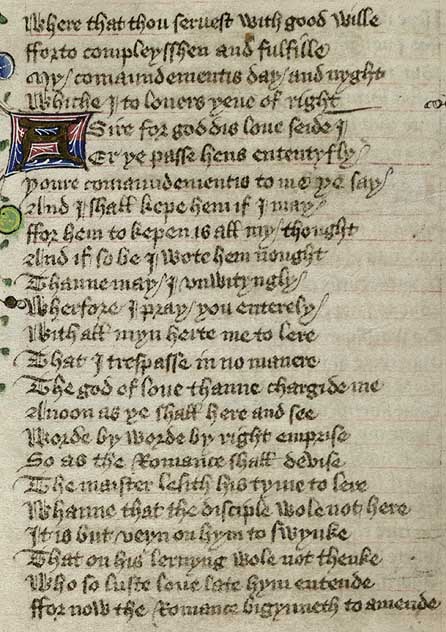 Where that thou seruest with good wille
fforto compleysshen and fulfille
My comaundementis day and nyght
Whiche I to louers yeue of right
A Sire for goddis loue seide I
Er ye passe hens ententyfly
youre comaundementis to me ye say
And I shall kepe hem if I may
ffor hem to kepen is all my thought
And if so be I wote hem nought
Thanne may I vnwityngly
Wherfore I pray you enterely
With all myn herte me to lere
That I trespasse in no manere
The god of loue thanne chargide me
Anoon as ye shall here and see
Worde by worde by right emprise
So as the Romance shall deuise
The maister lesith his tyme to lere
Whanne that the disciple wole not here
It is but veyn on hym to swynke
That on his lernyng wole not thenke
Who so luste loue late hym entende
ffor now the Romance bigynneth to amende